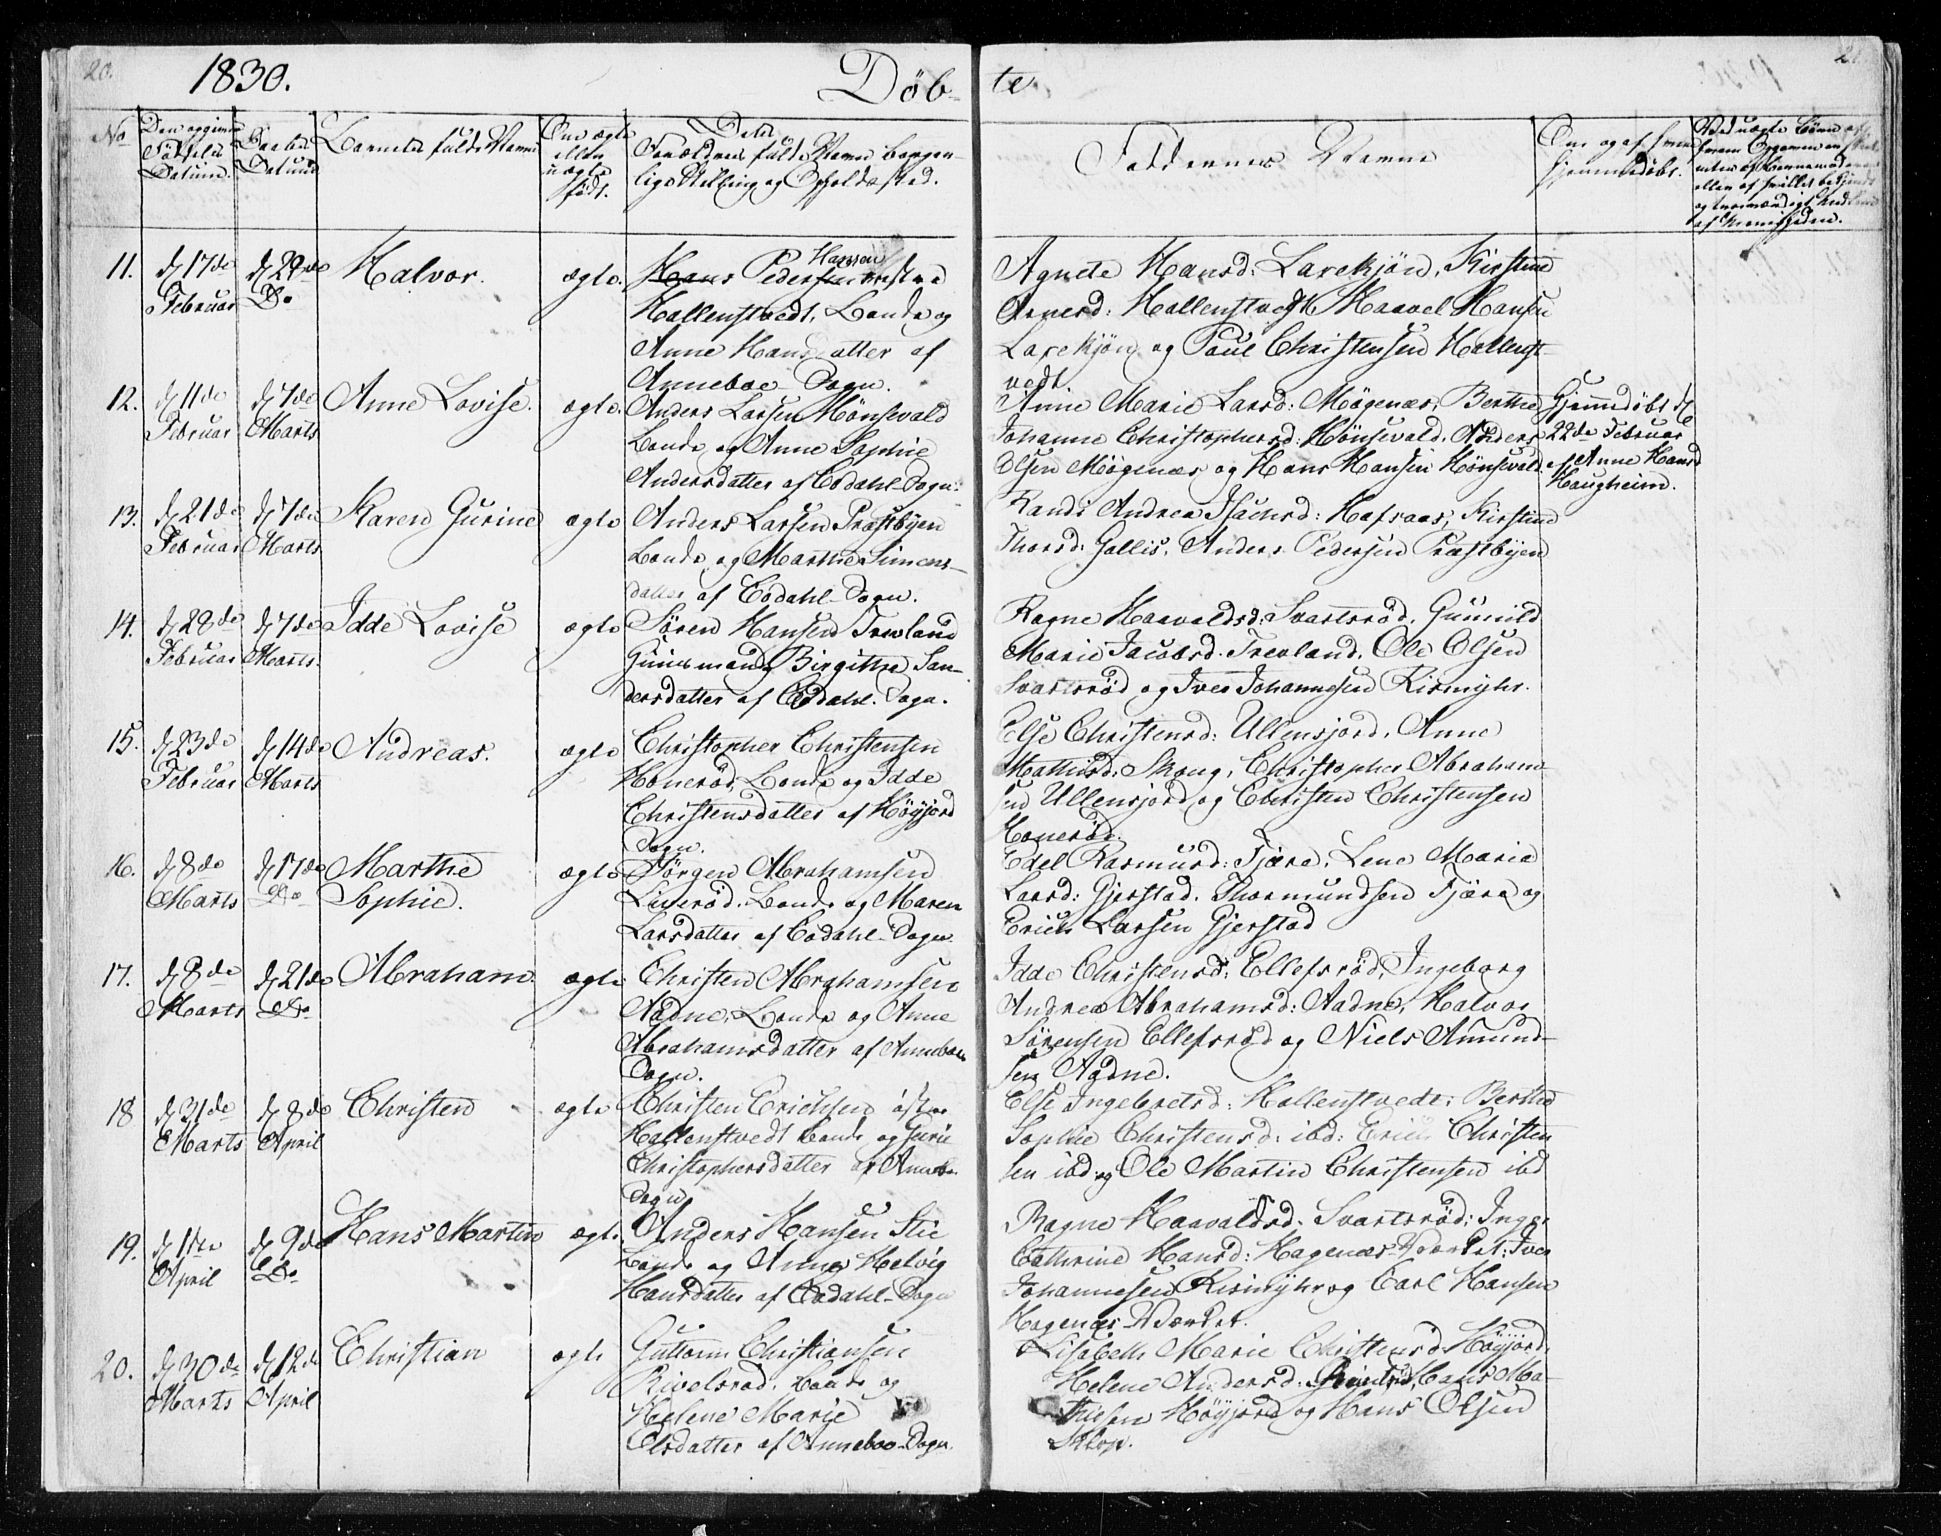 20.
1830.
Døb-
te
21.
No
Den opgivne
Fødsels
Datum.
Daabs
Datum
Barnets fulde Navn
Om ægte
eller
uægte
født.
Forældres fulde Navn borger-
lig Stilling og Opholdssted.
Faddernes Navne
Om og af hvem
hjemmedøbt.
11.
d 17de
Februar
d 29de
Do
Halvor.
ægte.
Hans Peder Hansen
Hallenstvedt, Bonde og
Anne Hansdatter af
Anneboe-Sogn.
Agnete Hansd: Laxekjøn, Kirstine
Hallenstvedt Haavel Hansen
Laxekjøn og Poul Christensen Hallenst-
vedt
12.
d 11de
Februar
d 7de
Marts
Anne Lovise.
ægte.
Anders Larsen Hønsevald
Bonde og Anne Sophie
Andersdatter af Codahl-Sogn.
Anne Marie Larsd: Møgenæs, Berthe
Johanne Christophersd: Hønsevald, Anders
Olsen Møgenæs og Hans Hansen Hønsevald.
Hjemedøbt d
22de Februar
af Anne Hansd
Haugheim.
13.
d 21de
Februar
d 7de
Marts
Karen Gurine
ægte
Anders Larsen Præstbyen
Bonde og Marthe Simens-
datter af Codahl-Sogn.
Randi Andrea Isachsd: Hafsaas, Kirstine
Thorsd: Gallis, Anders Pedersen Præstbyen
14.
d 28de
Februar
d 7de
Marts.
Idde Lovise
ægte
Søren Hansen Trevland
Huusmand, Birgitha San-
dersdatter af Codahl-Sogn.
Ragne Haavaldsd: Svartsrød, Gunnild
Marie Jacobsd. Trevland, Ole Olsen
Svartsrød og Iver Johannesen Rismyhr.
15.
d 23de
Februar
d 14de
Marts
Andreas.
ægte
Christopher Christensen
Honerød, Bonde og Idde
Christensdatter af Høyjord
Sogn.
Else Christensd: Ullensjord, Anne
Mathisd: Skoug, Christopher Abraham-
sen Ullensjord og Christen Christensen
Honerød.
16.
d 8de
Marts
d 17de
Do
Marthe
Sophie.
ægte
Jørgen Abrahamsen
Liverød, Bonde og Maren
Larsdatter af Codahl-Sogn
Edel Rasmusd: Fjære, Lene Maria
Larsd: Gjerstad. Thormundsen Fjære og
Erich Larsen Gjerstad
17.
d 8de
Marts
d 21de
Do
Abraham
ægte
Christen Abrahamsen
Aadne, Bonde og Anne
Abrahamsdatter af Anneboe
Sogn.
Idde Christensd: Ellefsrød, Ingeborg
Andrea Abrahamsd: Aadne, Halvor
Sørensen Ellefsrød og Niels Amund-
sen Aadne.
18
d 31de
Marts
d 8de
April
Christen
ægte
Christen Erichsen østre
Hallenstvedt Bonde og Gurie
Christophersdatter af Annebo-
Sogn
Else Ingebretsd: Hallenstvedt; Berthe
Sophie Christensd: ibd: Erich Christen
sen ibd og Ole Martin Christensen ibd
19.
d 1ste
April
d 9de
Do
Hans Martin
ægte
Anders Hansen Stie
Bonde og Anne Helvig
Hansdatter af Codahl-Sogn
Ragne Haavaldsd. Svartsrød; Inger
Cathrine Hansd: Hagenæs Værket: Iver
Johannesen Rismyhr og Carl Hansen
Hagenæs Værket.
20.
d 30de
Marts
d 12de
April
Christian
ægte
Guttorm Christiansen
Rivelsrød, Bonde og
Helene Marie
Elsdatter af Anneboe-Sogn.
Lisabeth Marie Christensd Høyjord,
Helene Andersd: Hans Ma-
thiesen Høyjord og Hans Olsen
Klop.